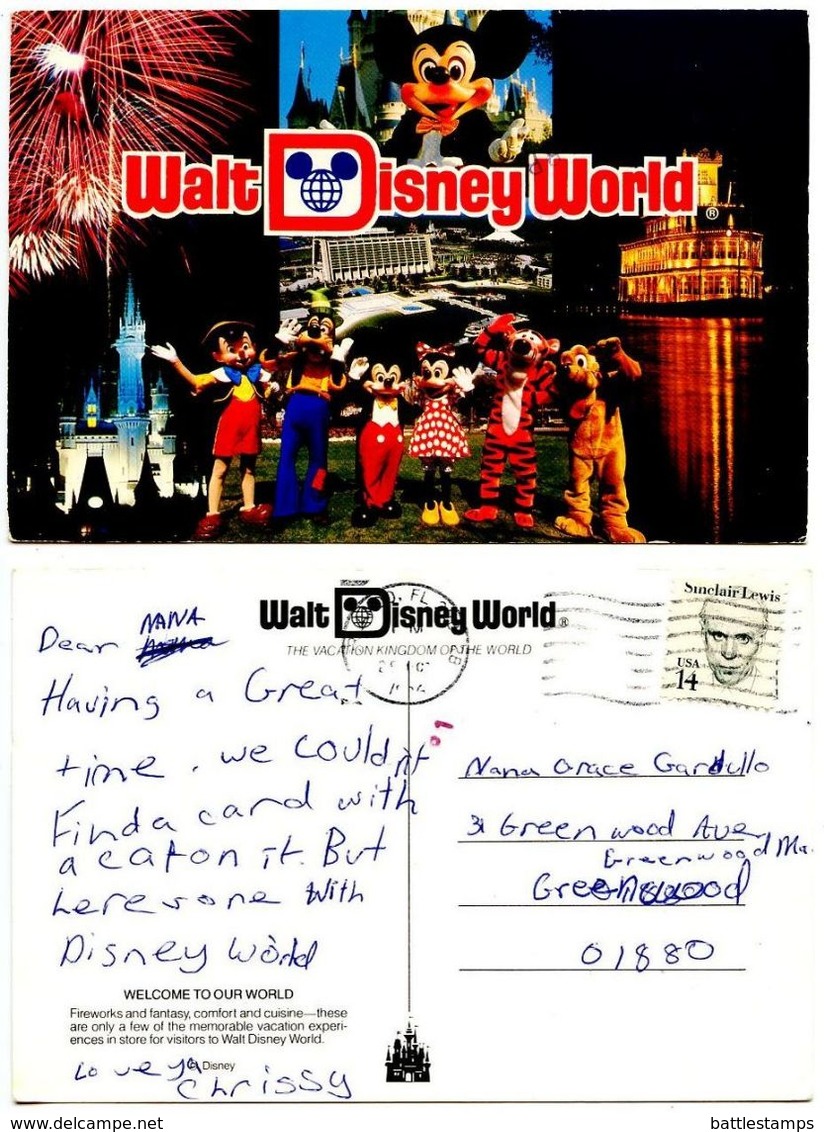 Walt Disney World ®
Walt Disney World ®
THE VACATION KINGDOM OF THE WORLD
FL
Sinclair Lewis
USA
14
Dear NANA
Having a Great
time, we couldn't
Find a card with
a cat on it. But
heres one with
Disney World
WELCOME TO OUR WORLD
Fireworks and fantasy, comfort and cuisine—these
are only a few of the memorable vacation experi-
ences in store for visitors to Walt Disney World.
© Disney
Love ya
Chrissy
Nana Grace Gardullo
31 Greenwood Ave
Greenwood Ma.
Greenwood
01880
battlestamps